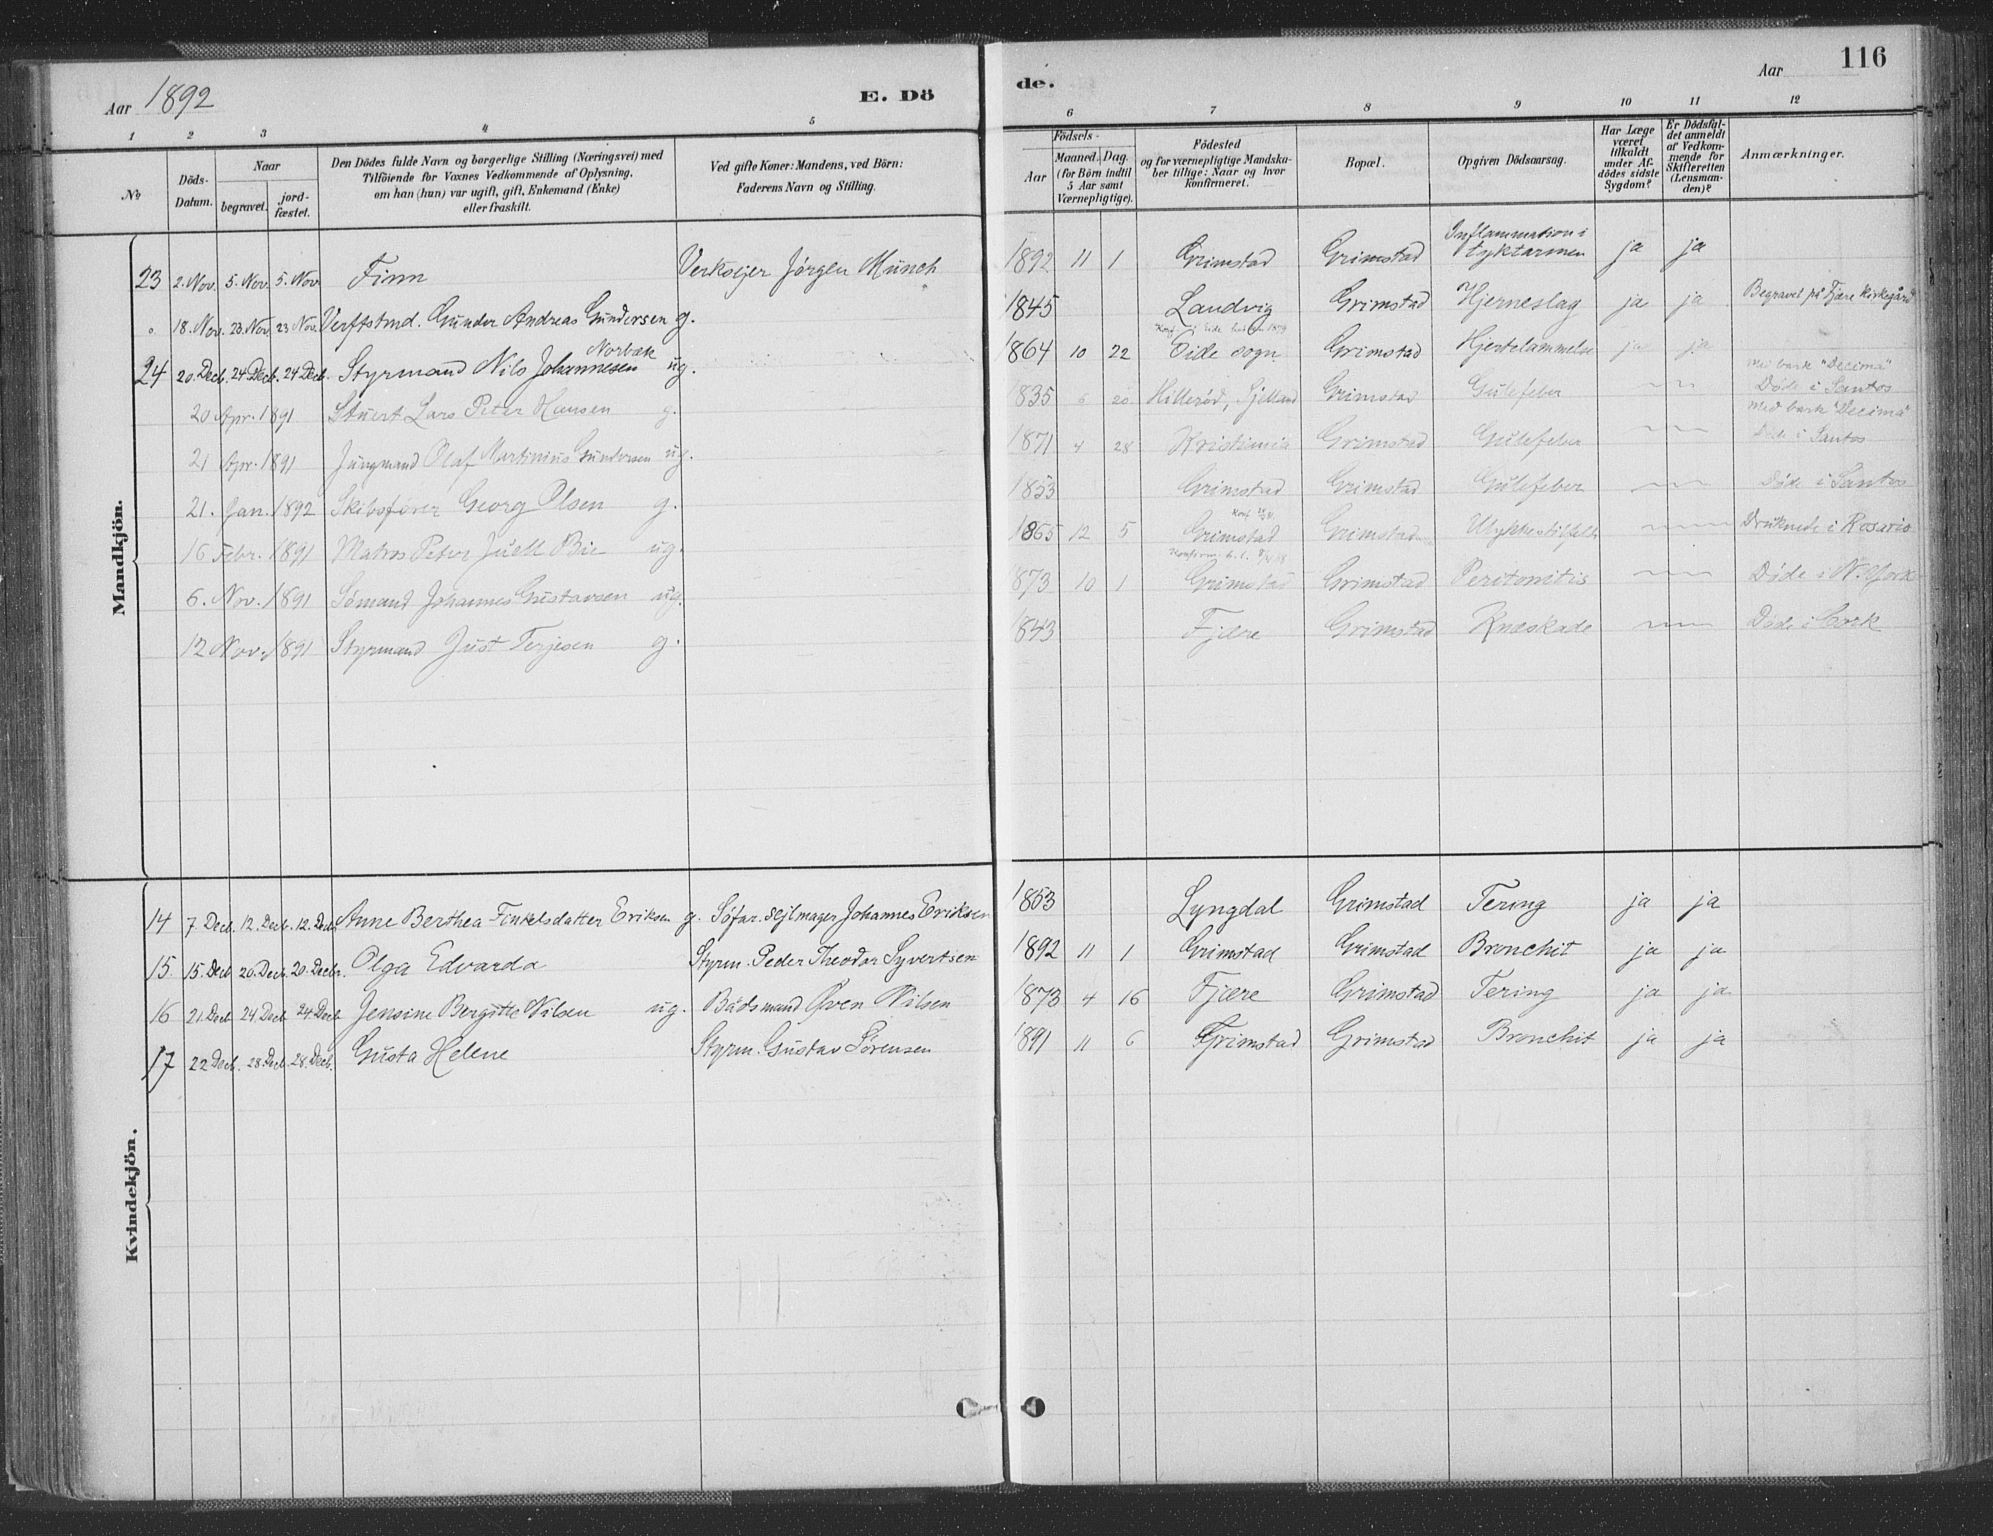 Aar 1892
E. Dö
de.
Aar
116
1 2 3 4 5 6 7 8 9 10 11 12
No
Döds-Datum.
Naar
begravet.
jord-fæstet.
Den Dödes fulde Navn og borgerlige Stilling (Næringsvei) med
Tilföiende for Voxnes Vedkommende af Oplysning,
om han (hun) var ugift, gift, Enkemand (Enke)
eller fraskilt.
Ved gifte Koner: Mandens, ved Börn:
Faderens Navn og Stilling.
Födsels-
Aar
Maaned. Dag.
(for Börn indtil
5 Aar samt
Værnepligtige).
Födested
og for værnepligtige Mandska-
ber tillige: Naar og hvor
konfirmeret.
Bopæl.
Opgiven Dödsaarsag.
Har Læge
været
tilkaldt
under Af-
dödes sidste
Sygdom?
Er Dödsfal-
det anmeldt
af Vedkom-
mende for
Skifteretten
(Lensman-
den)?
Anmærkninger.
Mandkjön.
23 2. Nov. 5. Nov. 5. Nov. Finn Verkseier Jörgen Münch 1892 11 1 Grimstad Grimstad Inflammation i Tyktarmen ja ja
18. Nov. 23. Nov. 23 Nov. Verftstmd. Gunder Andreas Gundersen g. 1845 Landvig Grimstad Hjerneslag ja ja Begravet på Fjære kirkegård
24 20. Decb. 24 Decb. 24 Decb. Styrmand Nils Johannesen Norbæk ug. 1864 10 22 Eide sogn Grimstad Hjertelammelse ja ja
20 Apr. 1891 Stuert Lars Peter Hansen g. 1835 6 20 Hilleröd, Sjelland Grimstad Gulefeber Med bark "Decima" Döde i Santos
21 Apr. 1891 Jungmand Olaf Martinius Gundersen ug. 1871 4 28 Kristiania Grimstad Gulefeber Med bark "Decima" Döde i Santos
21. Jan. 1892 Skibsförer Georg Olsen g. 1853 Grimstad Grimstad Gulefeber Döde i Santos
16 Febr. 1891 Matros Peter Juell Bie ug. 1865 12 5 Grimstad Grimstad Ulykkestilfelde Druknede i Rosario
6. Nov. 1891 Sömand Johannes Gustavsen ug. 1873 10 1 Grimstad Grimstad Peritonitis Döde i N. York
12 Nov. 1891 Styrmand Just Terjesen g. 1843 Fjære Grimstad Knæskade Döde i Cork
Kvindekjön.
14 7 Decb. 12. Decb. 12. Decb. Anne Berthea Finkelsdatter Eriksen g. Söfar. sejlmager Johannes Eriksen 1853 Lyngdal Grimstad Tering ja ja
15. 15. Decb 20. Decb. 20. Decbr. Olga Edvarda Styrm. Peder Theodor Syvertsen 1892 11 1 Grimstad Grimstad Bronchit ja ja
16 21. Decb 24 Decb 24 Decb Jensine Bergitte Nilsen ug. Bådsmand Öven Nilsen 1873 4 16 Fjære Grimstad Tering ja ja
17 22 Decb. 28. Decb. 28. Decb. Gusta Helene Styrm. Gustav Sörensen 1891 11 6 Grimstad Grimstad Bronchit ja ja